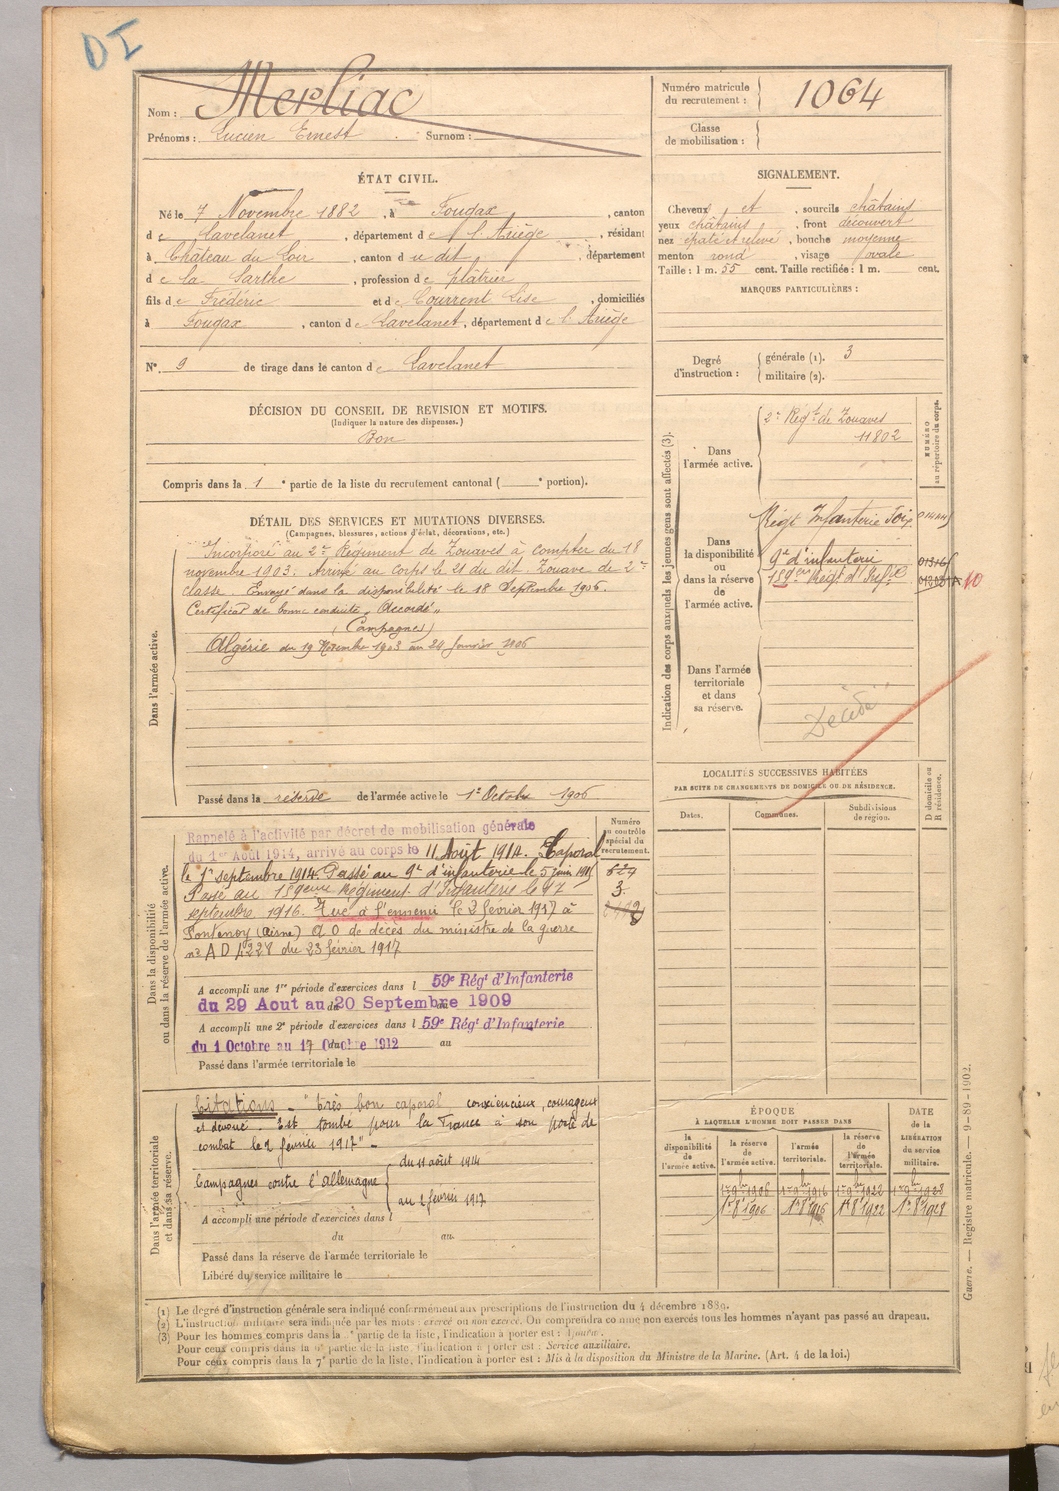 DI
Nom : Merliac
Prénoms : Lucien Ernest . Surnom :
Numéro matricule du recrutement : 1064
Classe de mobilisation :
ÉTAT CIVIL.
Né le 7 Novembre 1882, à Fougax, canton
de Lavelanet, département de l'Ariège, résidant
à Château du Loir, canton du dit, département
de la Sarthe, profession de plâtrier
fils de Frédéric et de Courrent Lise, domiciliés
à Fougax, canton de Lavelanet, département de l'Ariège
N° 9 de tirage dans le canton de Lavelanet
SIGNALEMENT.
Cheveux et, sourcils châtains
yeux châtains, front découvert
nez épaté et relevé, bouche moyenne
menton rond, visage ovale
Taille : 1 m. 55 cent. Taille rectifiée : 1 m. cent.
MARQUES PARTICULIÈRES :
Degré d'instruction : générale (1). 3
militaire (2).
DÉCISION DU CONSEIL DE REVISION ET MOTIFS.
(Indiquer la nature des dispenses.)
Bon
Compris dans la 1e partie de la liste du recrutement cantonal ( e portion).
DÉTAIL DES SERVICES ET MUTATIONS DIVERSES.
(Campagnes, blessures, actions d'éclat, décorations, etc.)
Dans l'armée active.
Incorporé au 2e Régiment de Zouaves à compter du 18
novembre 1903. Arrivé au corps le 21 du dit. Zouave de 2e
classe. Envoyé dans la disponibilité le 18 Septembre 1906.
Certificat de bonne conduite "Accordé"
(Campagnes)
Algérie du 19 Novembre 1903 au 24 Janvier 1906
Passé dans la réserve de l'armée active le 1er Octobre 1906
Indication des corps auxquels les jeunes gens sont affectés (3).
NUMÉRO au répertoire du corps.
Dans l'armée active.
2e Régt de Zouaves
11802
Dans la disponibilité ou dans la réserve de l'armée active.
Régt Infanterie Foix
9e d'infanterie
189eme Régt d'Infie
10
Dans l'armée territoriale et dans sa réserve.
"Décédé"
LOCALITÉS SUCCESSIVES HABITÉES
PAR SUITE DE CHANGEMENTS DE DOMICILE OU DE RÉSIDENCE.
Dates. Communes. Subdivisions de région. D domicile ou R résidence.
Dans la disponibilité ou dans la réserve de l'armée active.
Numéro au contrôle spécial du recrutement.
Rappelé à l'activité par décret de mobilisation générale
du 1er Août 1914, arrivé au corps le 11 Août 1914. Caporal
le 1er septembre 1914. Passé au 9e d'infanterie le 5 juin 1915
Passé au 189eme Régiment d'Infanterie le 17
septembre 1916. Tué à l'ennemi le 2 février 1917 à
Fontenoy (Aisne) a o de décès du ministre de la guerre
no AD 4228 du 23 février 1917
A accompli une 1re période d'exercices dans l 59e Régt d'Infanterie
du 29 Aout au 20 Septembre 1909
A accompli une 2e période d'exercices dans l 59e Régt d'Infanterie
du 1 Octobre au 17 Octobre 1912 au
Passé dans l'armée territoriale le
Dans l'armée territoriale et dans sa réserve.
Citations - "très bon caporal consciencieux, courageux
et dévoué. Est tombé pour la France à son poste de
combat le 2 février 1917" -
Campagnes contre l'allemagne du 11 août 1914
au 2 février 1917
A accompli une période d'exercices dans l
du au
Passé dans la réserve de l'armée territoriale le
Libéré du service militaire le
ÉPOQUE
À LAQUELLE L'HOMME DOIT PASSER DANS
DATE de la LIBÉRATION du service militaire.
la disponibilité de l'armée active. la réserve de l'armée active. l'armée territoriale. la réserve de l'armée territoriale.
1er 9bre 1906 1er 9bre 1916 1er 9bre 1922 1er 9bre 1928
1er 8bre 1906 1er 8bre 1916 1er 8bre 1922 1er 8bre 1928
(1) Le degré d'instruction générale sera indiqué conformément aux prescriptions de l'instruction du 4 décembre 1889.
(2) L'instruction militaire sera indiquée par les mots : exercé ou non exercé. On comprendra comme non exercés tous les hommes n'ayant pas passé au drapeau.
(3) Pour les hommes compris dans la partie de la liste, l'indication à porter est :
Pour ceux compris dans la 6e partie de la liste, l'indication à porter est : Service auxiliaire.
Pour ceux compris dans la 7e partie de la liste, l'indication à porter est : Mis à la disposition du Ministre de la Marine. (Art. 4 de la loi.)
Guerre. — Registre matricule. — 9-89-1902.